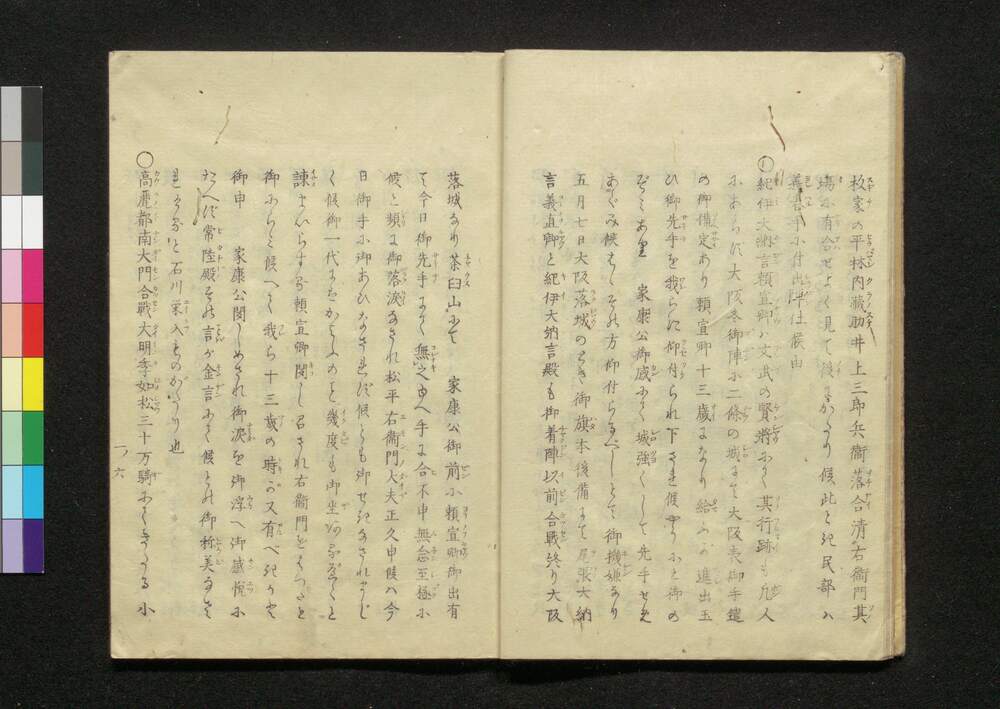 枚家の平林内蔵助井上三郎兵衛落合清右衛門其
場に有合せよく見て後にかたり候此とき民部ハ
善手に付出陣仕候由
○紀伊大納言頼宣卿ハ文武の賢将にて其行跡も凡人
にあらず大阪冬御陣に二條の城にて大阪表御手遣
の御備定あり頼宣卿十三歳になり給ふが進出玉
ひ御先手を我らに仰付られ下され候やうにと御の
ぞみあり 家康公御感にて城強くして先手せめ
あぐみ候はゞその方仰付らるべしとて御機嫌なり
五月七日大阪落城のとき御旗本後備にて尾張大納
言義直卿と紀伊大納言殿も御着陣以前合戦終り大阪
落城なり茶臼山にて 家康公御前に頼宣卿御出有
て今日御先手にて無之ゆへ手に合不申無念至極に
候と頻に御落涙なされ松平右衛門大夫正久申候ハ今
日御手に御あひなされず候とも御せきなされまじ
く候御一代にはかやうのこと幾度も御坐あるべくと
諫まいらする頼宣卿聞し召され右衛門をはつたと
御にらミ候へて我ら十三歳の時が又有べきかと
御申 家康公聞しめされ御涙を御浮へ御感悦に
たへず常陸殿その言が金言にて候との御称美なりさ
れたると石川栄入ものがたり也
○高麗都南大門合戦大明季如松三十万騎にてきたる小
六